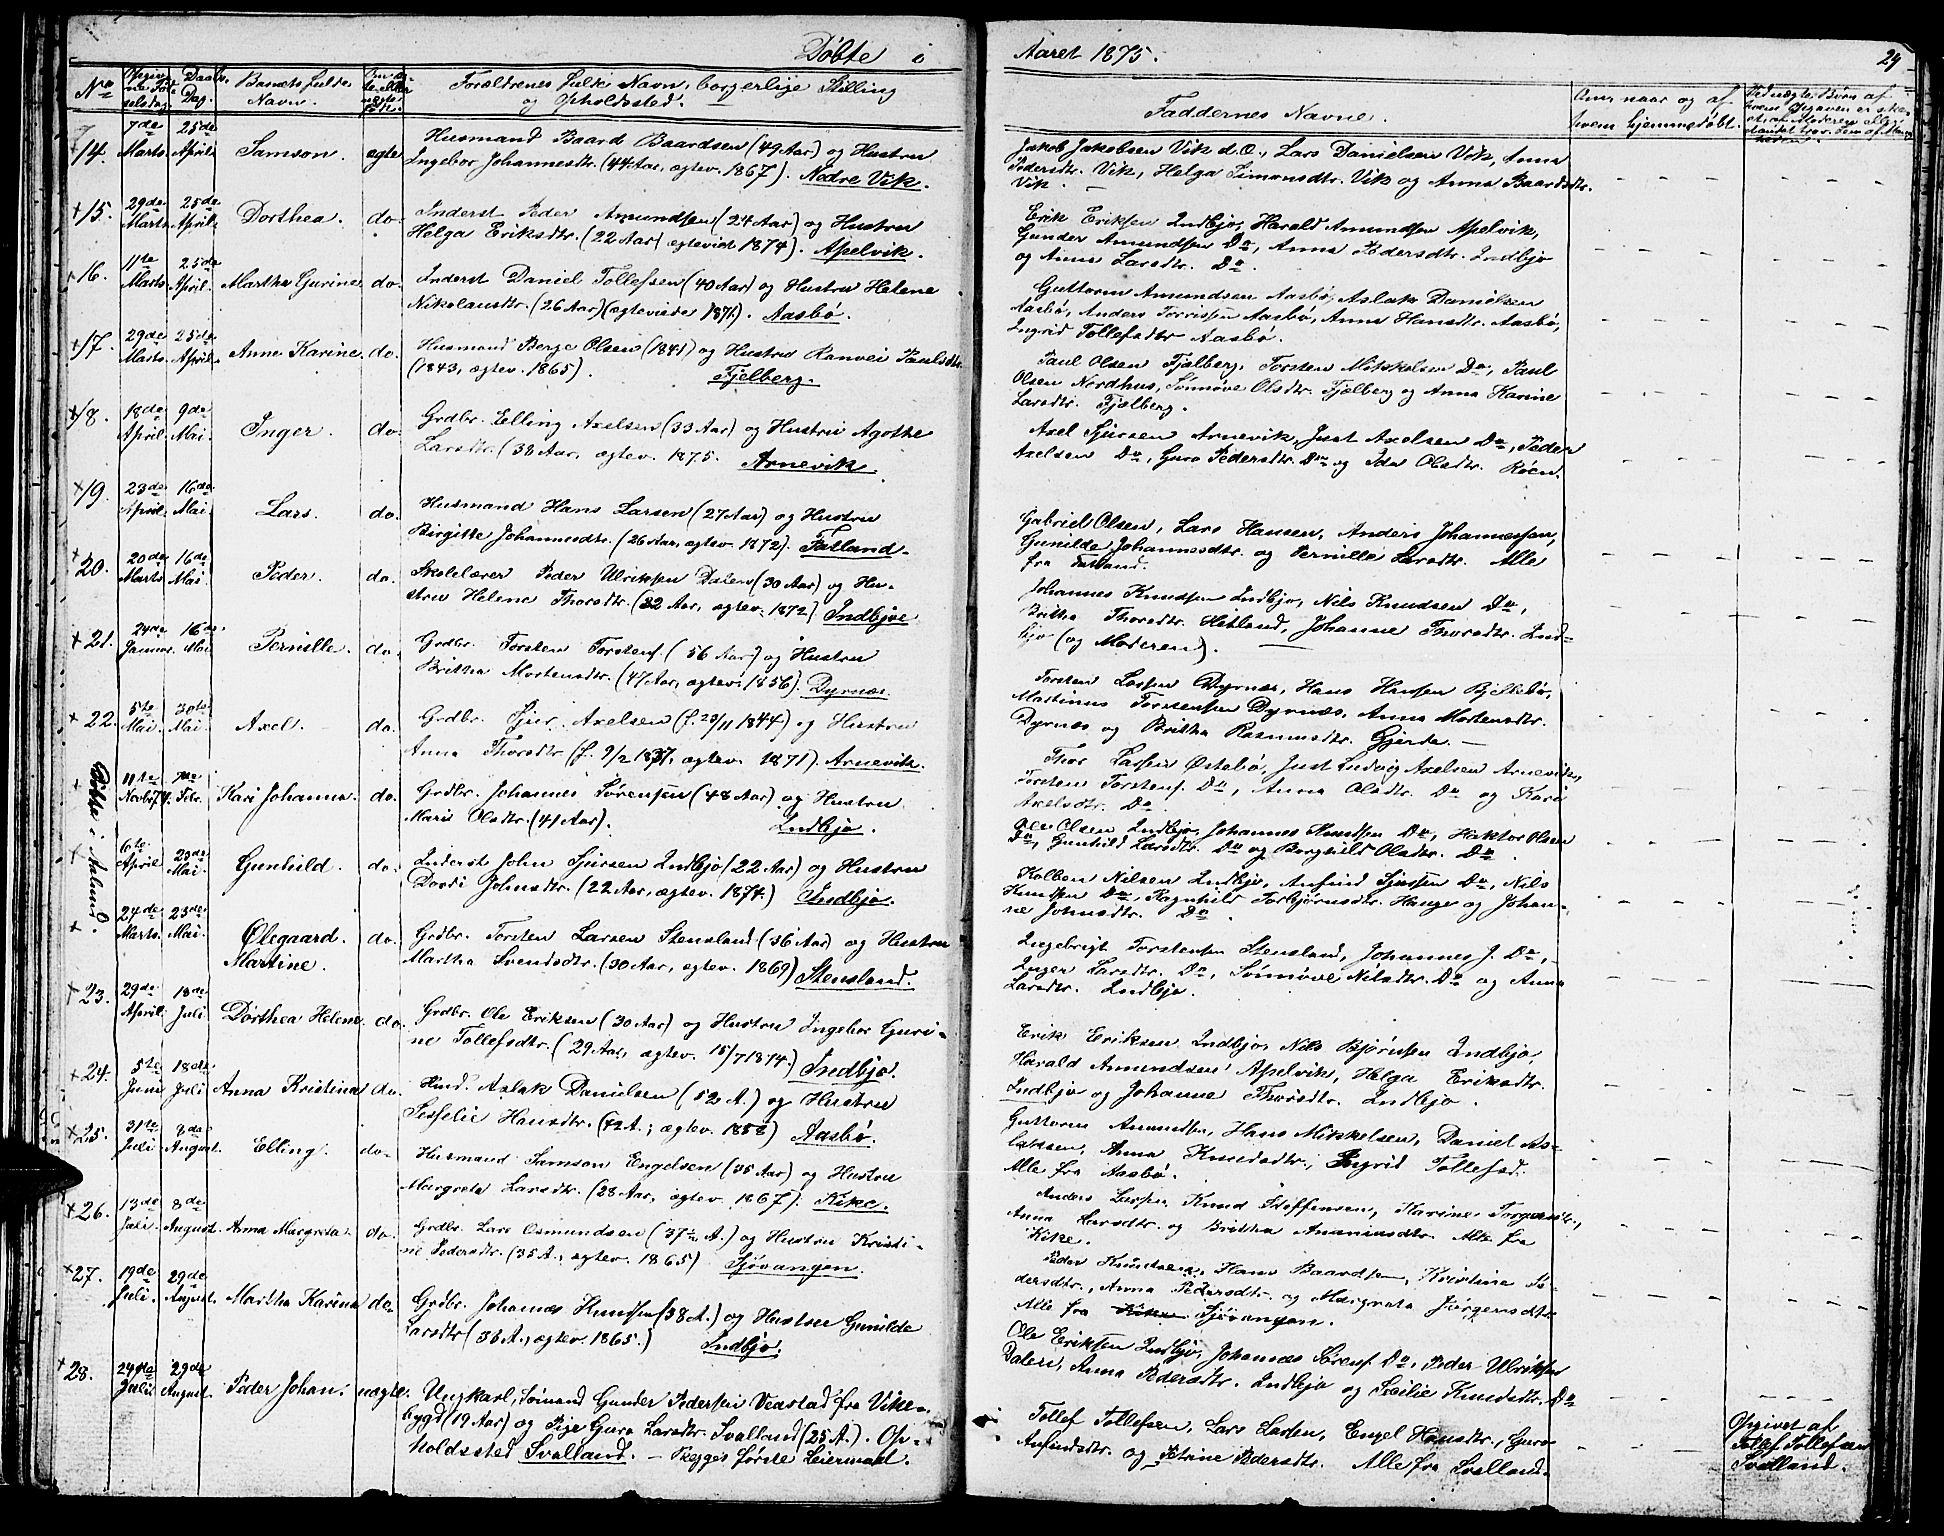 Döbte i
No
Opgiven Födselsdag.
Daabs-Dag.
Barnets fulde Navn.
Forældrenes fulde Navn, borgerlige Stilling
og Opholdssted.
14. 7de Marts. 25de April. Samson. ægte Husmand Baard Baardsen (49 Aar) og Hustru
Ingebor Johannesdtr. (44 Aar, ægtev. 1867). Nedre Vik.
15. 29de Marts. 25de April. Dorthea. do. Inderst Peder Amundsen (24 Aar) og Hustru
Helga Eriksdtr. (22 Aar, ægteviet 1874). Apelvik.
16. 11te Marts. 25de April. Martha Gurine do. Inderst Daniel Tollefsen (40 Aar) og Hustru Helene
Nikolausdtr. (26 Aar) (ægteviede 1871). Aasbö.
17. 29de Marts. 25de April. Anne Karine do. Husmand Berge Olsen (1841) og Hustru Ranvei Paulsdtr.
(1843, ægtev. 1865). Fjelberg.
18. 18de April. 9de Mai. Inger. do. Grdbr. Elling Axelsen (33 Aar) og Hustru Agothe
Larsdtr. (38 Aar, ægtev. 1875. Arnevik.
19. 23de April. 16de Mai. Lars. do. Husmand Hans Larsen (27 Aar) og Hustru
Birgitte Johannesdtr. (26 Aar, ægtev. 1872). Fatland.
20. 20de Marts 16de Mai. Peder. do. Skolelærer Peder Ulriksen Dalen (30 Aar) og Hu-
stru Helene Thorsdtr. (32 Aar, ægtev. 1872) Indbjoe
21. 24de Januar. 16de Mai Pernille. do. Grdbr. Torsten Torstens. (56 Aar) og Hustru
Britha Mortensdtr. (47 Aar, ægtev. 1856). Dyrnæs.
22. 5te Mai. 30te Mai. Axel. do. Grdbr. Sjur Axelsen (f. 23/11 1844) og Hustru
Anna Thorsdtr. (f. 9/2 1837, ægtev. 1871). Arnevik.
Döbte i Aalund.
11te Novbr 74. 7de Febr. Kari Johanna. do. Grdbr. Johannes Sörensen (48 Aar) og Hustru
Mari Olsdtr. (41 Aar). Indbjo.
6te April 23de Mai. Gunhild. do. Inderst John Sjursen Indbjo (22 Aar) og Hustru
Dordi Johnsdtr. (22 Aar, ægtev. 1874.) Indbjo.
24de Marts. 23de Mai. Ølegaard Martine. do. Grdbr. Torsten Larsen Stensland (36 Aar) og Hustru
Martha Svendsdtr. (30 Aar, ægtev. 1869) Stensland.
23. 29de April. 18de Juli. Dorthea Helene do. Grdbr. Ole Eriksen (30 Aar) og Hustru Ingebor Guri-
ne Tollefsdtr. (29 Aar, ægtev. 15/7 1874.) Indbjo.
24. 5te Juni 18de Juli Anna Kristina do. Aslak Danielsen (52 A.) og Hustru
Hansdtr. (42 A.; ægtev. 1858) Aasbö.
25. 31te Juli 8de August. Elling. do. Husmand Samson Engelsen (35 Aar) og Hustru
Margreta Larsdtr. (28 Aar, ægtev. 1867). Kike.
26. 13de Juli. 8de August. Anna Margreta. do. Grdbr. Lars Osmundsen (37½ A.) og Hustru Kristi-
ne Pedersdtr. (35 A., ægtev. 1865) Sjövangen.
27. 19de Juli. 29de August. Martha Karina do. Grdbr. Johannes Knudsen (38 A.) og Hustru Gunilde
Larsdtr (33 A., ægtev. 1865.) Indbjo.
28. Juli 29de August. Peder Johan. uægte. Ungkarl, Sömand Gunder Pedersen Veastad fra Vike-
bygd (19 Aar) og Pige Guro Larsdtr. Svalland (25 A.). Op-
holdssted Svalland. — Begges förste Leiermaal.
Aaret 1875.
29
Faddernes Navne.
Om, naar og af
hvem hjemmedöbt.
Ved uægte Börn af
hvem Opgaven er skeet,
Jakob Jakobsen Vik d.O., Lars Danielsen Vik, Anna
Pedersdtr. Vik, Helga Simonsdtr. Vik og Anna Baardsdtr.
Vik.
Erik Eriksen Indbjo, Harald Amundsen Apelvik,
Gunder Amundsen Do, Anna Pedersdtr. Indbjo
og Anna Larsdtr. Do.
Guttorm Amundsen Aasbö, Aslak Danielsen
Aasbö, Anders Aasbö, Anna Hansdtr. Aasbö,
Ingrid Tollefsdtr Aasbö.
Paul Olsen Fjelberg, Torsten Mikkelsen Do, Paul
Olsen Nordhus, Sönnöve Olsdtr. Fjelberg og Anna Karine
Larsdtr. Fjelberg.
Axel Sjursen Arnevik, Just Axelsen Do, Peder
Axelsen Do, Guro Pedersdtr. Do og Ida Olsdtr. Röen.
Gabriel Olsen, Lars Hansen, Anders Johannessen,
Gunilde Johannesdtr. og Pernille Larsdtr. Alle
fra Fatland.
Johannes Knudsen Indbjo, Nils Knudsen Do,
Britha Thorsdtr. Hetland, Johanne Thorsdtr. Ind-
bjo (og Moderen).
Torsten Larsen Dyrnæs, Hans Hansen
Martinus Torstensen Dyrnæs, Anna Mortensdtr.
Dyrnæs og Britha Rasmusdtr. Gjerde.
Thor Larsen Östebö, Just Ludvig Axelsen Arnevik,
Torsten Torstens. Do, Anna Olsdtr. Do og Kari
Axelsdtr. Do
Ole Olsen Indbjo, Johannes Knudsen Do, Haktor Olsen
Do, Gunhild Larsdtr. Do og Borghild Olsdtr. Do
Kolben Nilsen Indbjo, Anfind Sjursen Do, Nils
Knudsen Do, Ragnhild Torbjörnsdtr. Hauge og Johan-
ne Johnsdtr. Do
Ingebrigt Torstensen Stensland, Johannes J. Do,
Inger Larsdtr. Do, Sönnöve Nilsdtr. Do og Anna
Larsdtr. Indbjo.
Erik Eriksen Indbjo, Nils Björnsen Indbjo,
Harald Amundsen Apelvik, Helga Eriksdtr.
Indbjo og Johanne Thorsdtr. Indbjo.
Guttorm Amundsen, Hans Mikkelsen, Daniel As-
laksen, Anna Knudsdtr., Ingrid Tollefsd.
Alle fra Aasbö.
Anders Larsen, Knud Steffensen, Karine Torgersdtr.,
Anna Larsdtr. og Britha Ananiasdtr. Alle fra
Kike.
Peder Knudsen, Hans Baardsen, Kristine Pe-
dersdtr., Anna Pedersdtr. og Margrete Jörgensdtr.
Alle fra Sjövangen.
Ole Eriksen Indbjo, Johannes Sörens. Do, Peder Ulriksen
Dalen, Anna Pedersdtr. Indbjo og Knudsdtr. Do
Tollef Tollefsen, Lars Larsen, Engel Hansdtr., Guro
Anfindsdtr. og Petrine Pedersdtr. Alle fra Svalland.
Opgivet af
Tollef Tollefsen
Svalland.